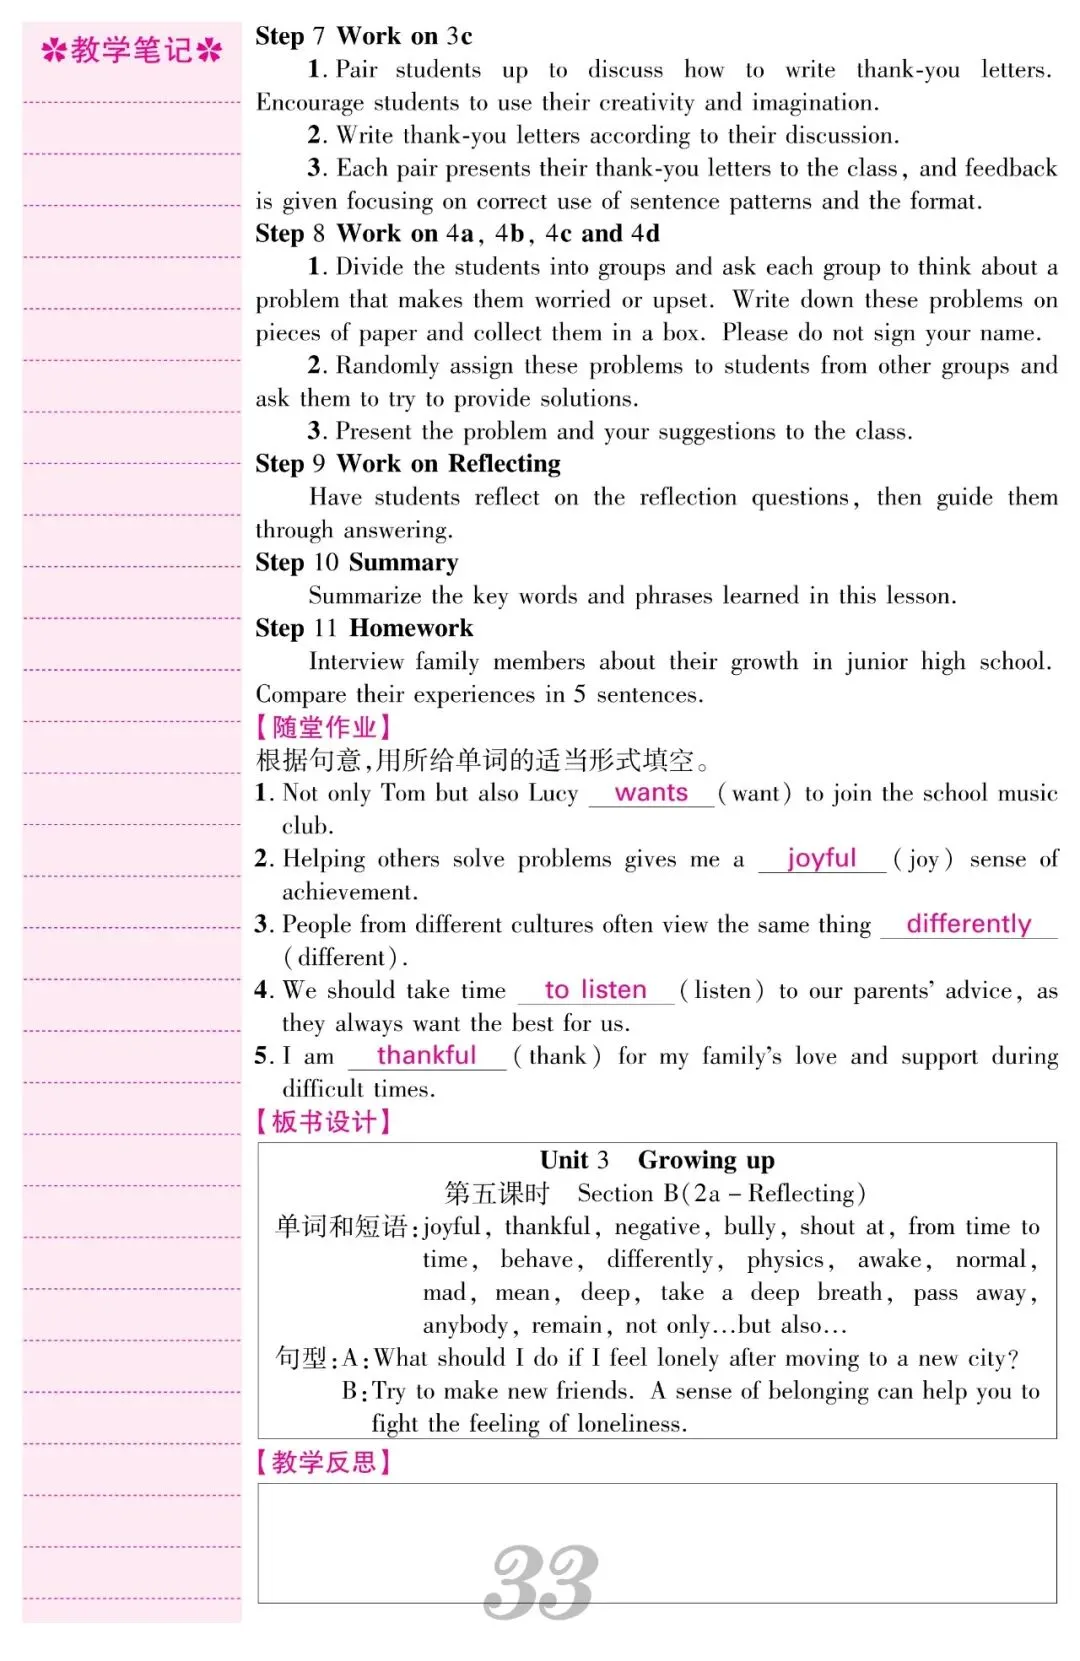 ✽教学笔记✽
Step 7 Work on 3c
1. Pair students up to discuss how to write thank-you letters.
Encourage students to use their creativity and imagination.
2. Write thank-you letters according to their discussion.
3. Each pair presents their thank-you letters to the class, and feedback
is given focusing on correct use of sentence patterns and the format.
Step 8 Work on 4a, 4b, 4c and 4d
1. Divide the students into groups and ask each group to think about a
problem that makes them worried or upset. Write down these problems on
pieces of paper and collect them in a box. Please do not sign your name.
2. Randomly assign these problems to students from other groups and
ask them to try to provide solutions.
3. Present the problem and your suggestions to the class.
Step 9 Work on Reflecting
Have students reflect on the reflection questions, then guide them
through answering.
Step 10 Summary
Summarize the key words and phrases learned in this lesson.
Step 11 Homework
Interview family members about their growth in junior high school.
Compare their experiences in 5 sentences.
【随堂作业】
根据句意,用所给单词的适当形式填空。
1. Not only Tom but also Lucy wants (want) to join the school music
club.
2. Helping others solve problems gives me a joyful (joy) sense of
achievement.
3. People from different cultures often view the same thing differently
(different).
4. We should take time to listen (listen) to our parents' advice, as
they always want the best for us.
5. I am thankful (thank) for my family's love and support during
difficult times.
【板书设计】
Unit 3 Growing up
第五课时 Section B(2a – Reflecting)
单词和短语:joyful, thankful, negative, bully, shout at, from time to
time, behave, differently, physics, awake, normal,
mad, mean, deep, take a deep breath, pass away,
anybody, remain, not only…but also…
句型:A:What should I do if I feel lonely after moving to a new city?
B:Try to make new friends. A sense of belonging can help you to
fight the feeling of loneliness.
【教学反思】
33